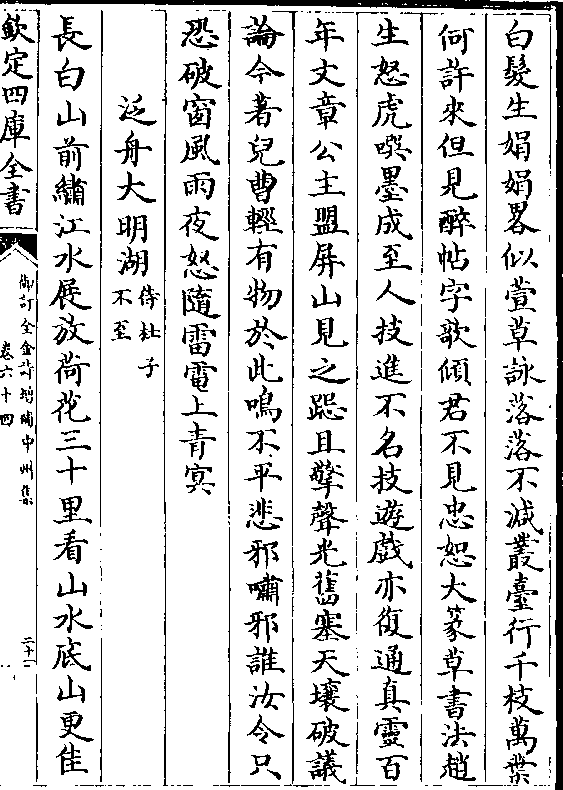 白髮生娟娟畧似萱草詠落落不減叢臺行千枝萬葉
何許來但見醉帖字歌傾君不見忠恕大篆草書法趙
生怒虎嘷墨成至人技進不名技遊戲亦復通真靈百
年文章公主盟屏山見之跽且擎聲光舊塞天壤破議
論今著兒曹輕有物於此鳴不平悲邪嘯邪誰汝令只
恐破窗風雨夜怒隨雷電上青冥
泛舟大明湖待杜子不至
長白山前繡江水展放荷花三十里看山水底山更佳
欽定四庫全書
御訂全金詩增補中州集
卷六十四
二十一